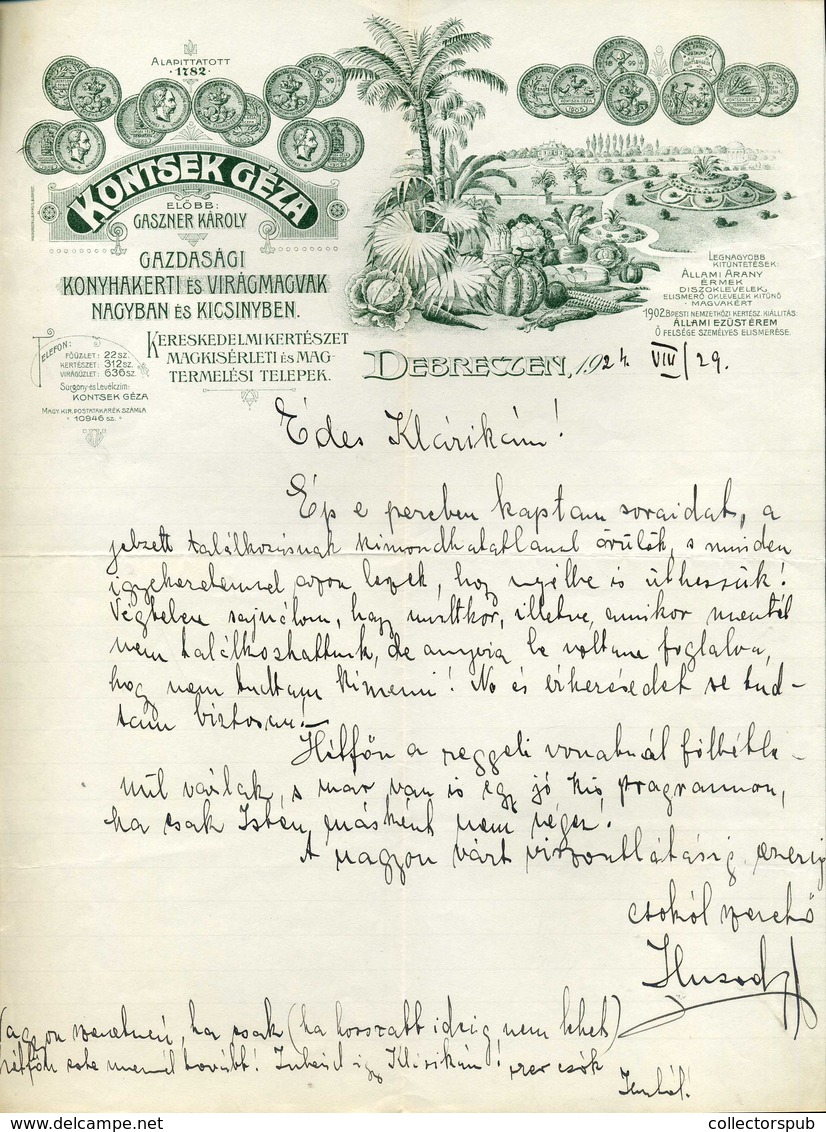 ALAPITTATOTT
·1782·
KONTSEK GÉZA
ELŐBB:
GASZNER KÁROLY
GAZDASÁGI
KONYHAKERTI ÉS VIRÁGMAGVAK
NAGYBAN ÉS KICSINYBEN.
KERESKEDELMI KERTÉSZET
MAGKISÉRLETI ÉS MAG-
TERMELÉSI TELEPEK.
TELEFON:
FŐÜZLET: 22 SZ.
KERTÉSZET: 312 SZ.
VIRÁGÜZLET: 636 SZ.
Sürgöny-és Levélczím:
KONTSEK GÉZA
MAGY. KIR. POSTATAKARÉK SZÁMLA
10946 SZ.
LEGNAGYOBB
KITÜNTETÉSEK:
ÁLLAMI ARANY
ÉRMEK
DISZOKLEVELEK,
ELISMERŐ OKLEVELEK KITÜNŐ
MAGVAKÉRT
1902. BPESTI NEMZETKÖZI KERTÉSZ. KIÁLLITÁS:
ÁLLAMI EZÜSTÉREM
Ő FELSÉGE SZEMÉLYES ELISMERÉSE.
DEBRECZEN, 1924 VIII/29.
Édes Klárikám!
Ép e perczben kaptam soraidat, a
jelzett találkozásnak kimondhatatlanul örülök, s minden
igyekezetemmel azon leszek, hogy nyélbe is üthessük!
Végtelen sajnálom, hogy multkor, illetve, amikor mentél
nem találkozhattunk, de annyira le voltam foglalva,
hogy nem tudtam kimenni! No és érkezésedet se tud-
tam biztosan! –
Hétfőn a reggeli vonatnál föltétle-
nül várlak, s már van is egy jó kis programmom,
ha csak Isten másként nem végez!
A nagyon várt viszontlátásig ezerig
csókól szerető
Nagyon szeretném, ha csak (ha hosszabb ideig nem lehet)
hétfőn este mennél tovább! Klárikám! ezer csók